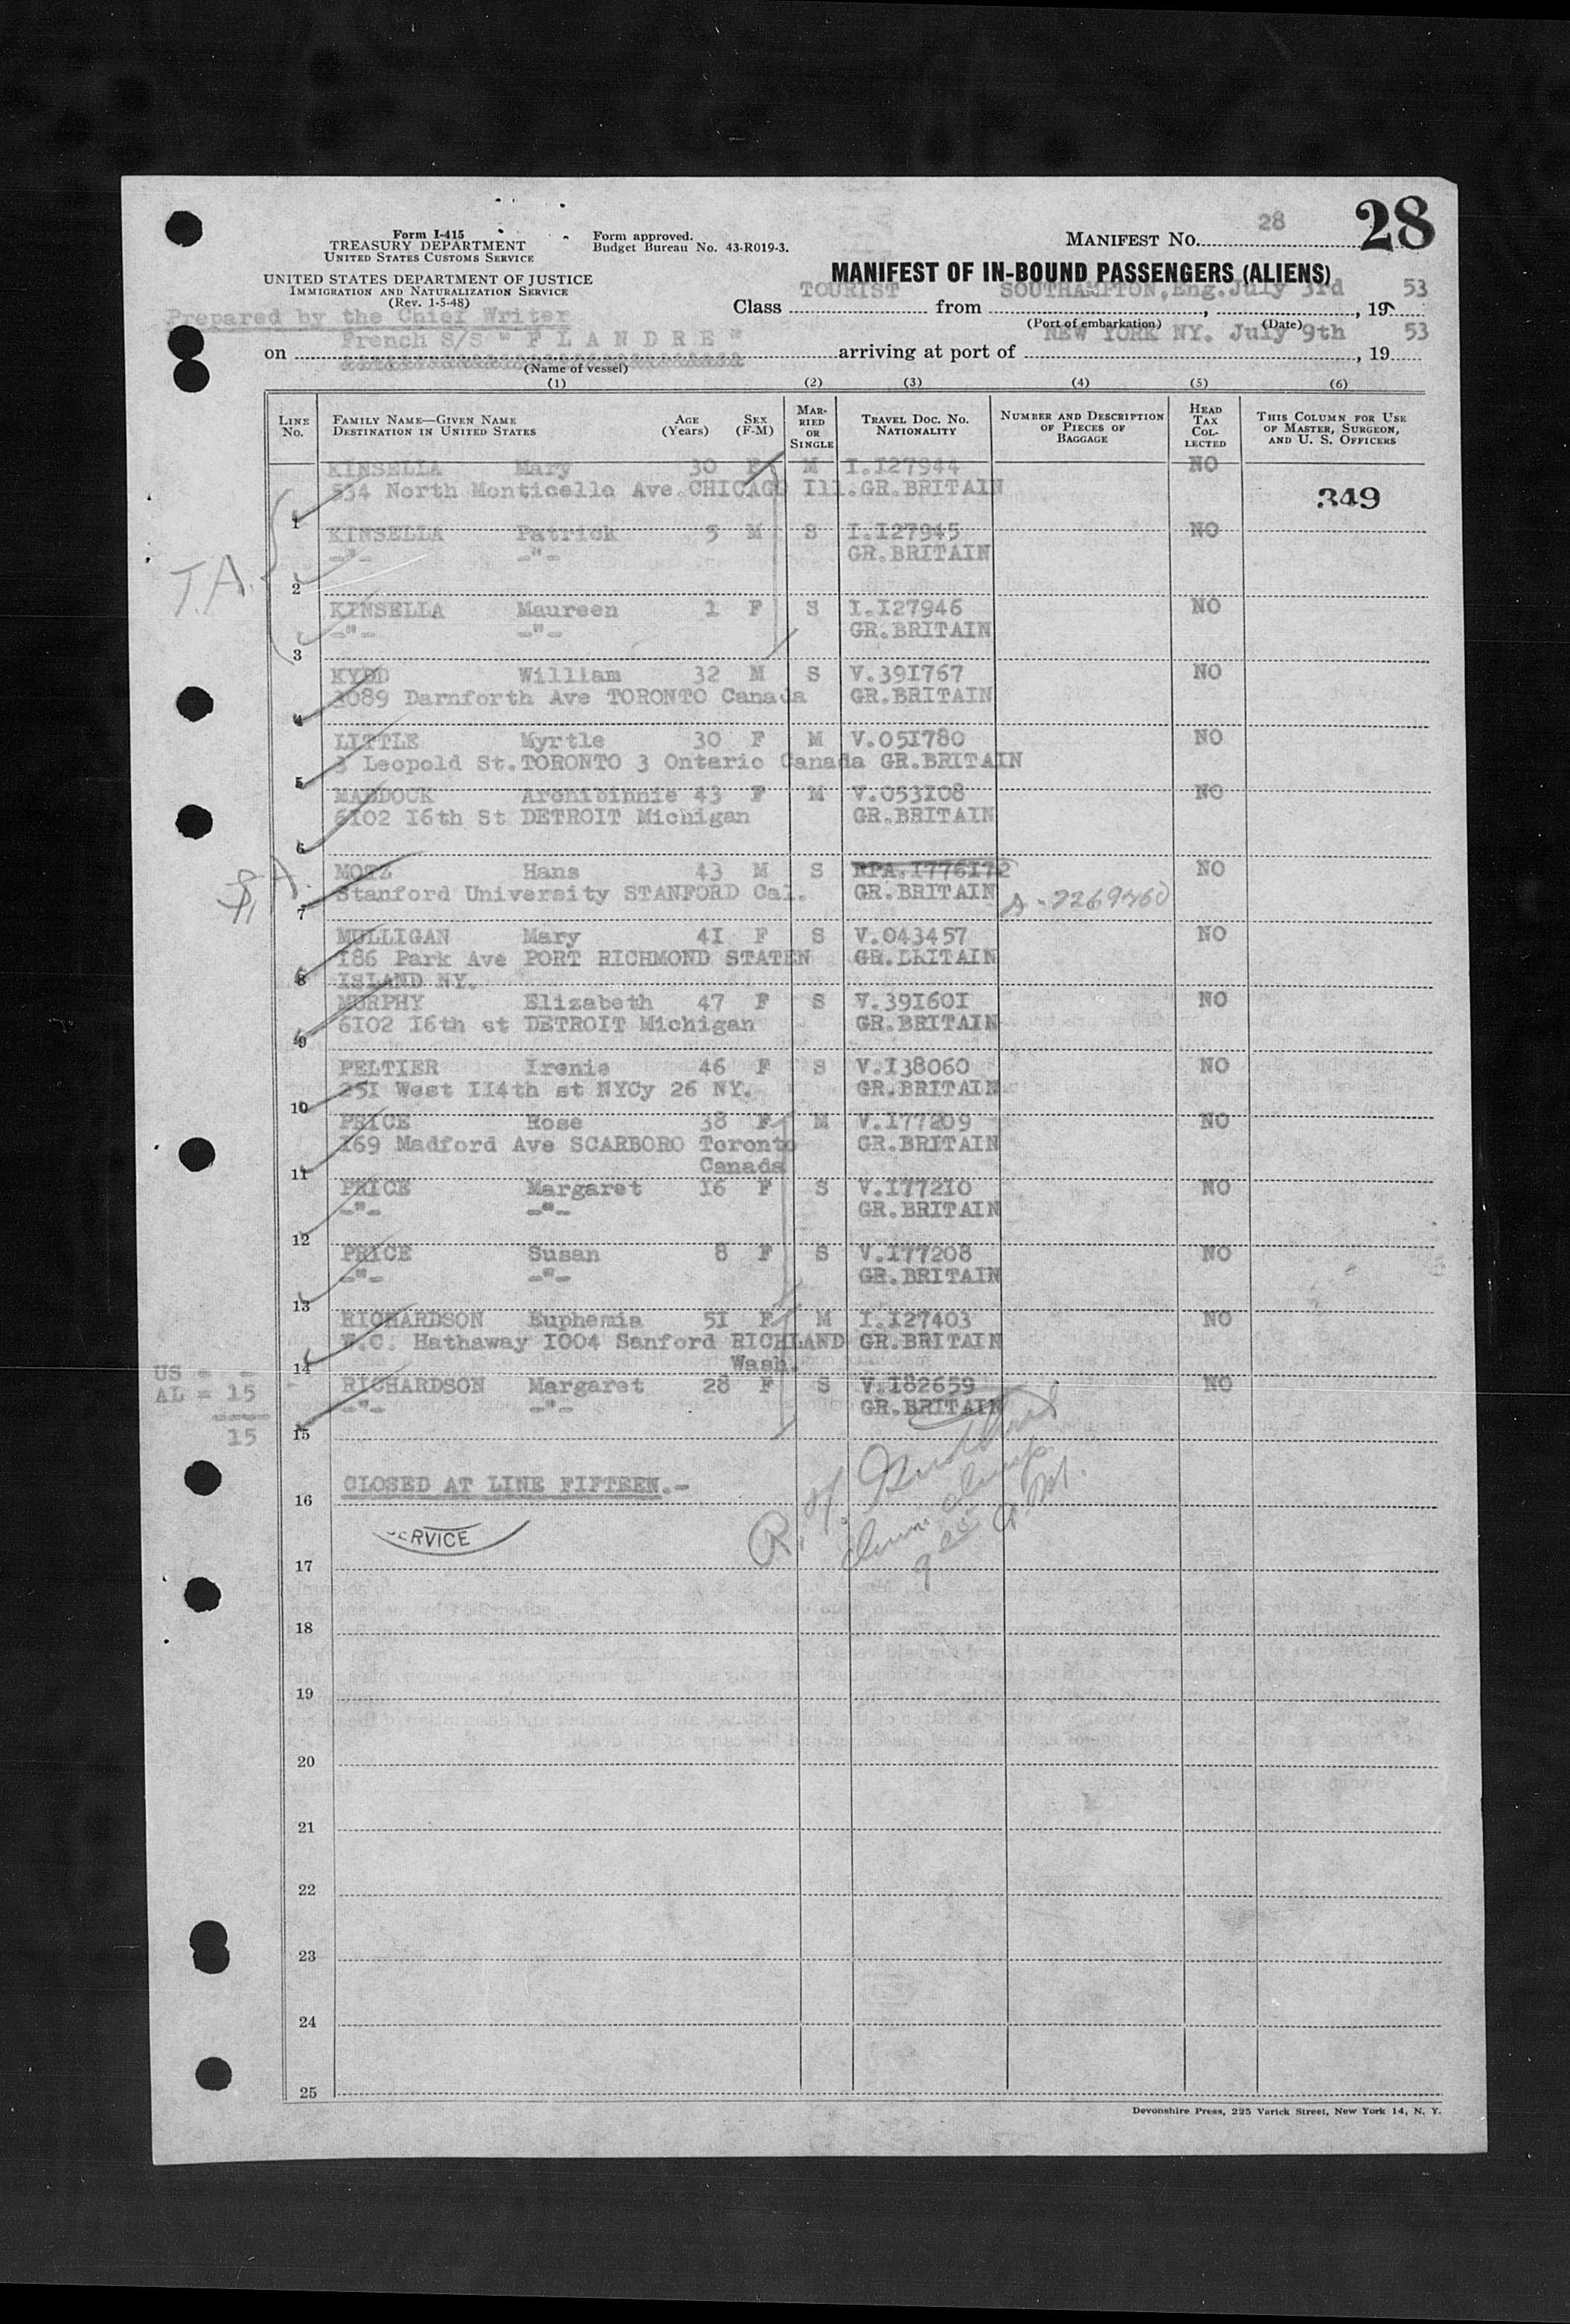 Form I-415
TREASURY DEPARTMENT
UNITED STATES CUSTOMS SERVICE
UNITED STATES DEPARTMENT OF JUSTICE
IMMIGRATION AND NATURALIZATION SERVICE
(Rev. 1-5-48)
Form approved.
Budget Bureau No. 43-R019-3.
MANIFEST NO. 28
28
MANIFEST OF IN-BOUND PASSENGERS (ALIENS)
Class TOURIST from SOUTHAMPTON,Eng. July 3rd, 19 53
(Port of embarkation) (Date)
Prepared by the Chief Writer
on French S/S " F L A N D R E " arriving at port of NEW YORK NY. July 9th, 19 53
(Name of vessel)
(1) (2) (3) (4) (5) (6)
LINE No. FAMILY NAME—GIVEN NAME DESTINATION IN UNITED STATES AGE (Years) SEX (F-M) MARRIED OR SINGLE TRAVEL DOC. NO. NATIONALITY NUMBER AND DESCRIPTION OF PIECES OF BAGGAGE HEAD TAX COLLECTED THIS COLUMN FOR USE OF MASTER, SURGEON, AND U. S. OFFICERS
KINSELLA Mary 30 F M I.I27944 NO
534 North Monticello Ave.CHICAGO Ill.GR.BRITAIN
349
1
KINSELLA Patrick 5 M S I.I27945 NO
-"- -"- GR.BRITAIN
T.A.
2
KINSELLA Maureen 1 F S I.I27946 NO
-"- -"- GR.BRITAIN
3
KYDD William 32 M S V.39I767 NO
3089 Darnforth Ave TORONTO Canada GR.BRITAIN
4
LITTLE Myrtle 30 F M V.05I780 NO
3 Leopold St.TORONTO 3 Ontario Canada GR.BRITAIN
5
MADDOCK Archibinnie 43 F M V.053I08 NO
6I02 I6th St DETROIT Michigan GR.BRITAIN
6
MOTZ Hans 43 M S RPA.I776I72 NO
Stanford University STANFORD Cal. GR.BRITAIN
7
MULLIGAN Mary 4I F S V.043457 NO
I86 Park Ave PORT RICHMOND STATEN GR.BRITAIN
8 ISLAND NY.
MURPHY Elizabeth 47 F S V.39I60I NO
6I02 I6th st DETROIT Michigan GR.BRITAIN
9
PELTIER Irenie 46 F S V.I38060 NO
25I West II4th st NYCy 26 NY. GR.BRITAIN
10
PRICE Rose 38 F M V.I77209 NO
I69 Madford Ave SCARBORO Toronto GR.BRITAIN
Canada
11
PRICE Margaret I6 F S V.I772I0 NO
-"- -"- GR.BRITAIN
12
PRICE Susan 8 F S V.I77208 NO
-"- -"- GR.BRITAIN
13
RICHARDSON Euphemia 5I F M I.I27403 NO
W.C. Hathaway I004 Sanford RICHLAND GR.BRITAIN
Wash.
14
US = -
RICHARDSON Margaret 28 F S V.I82659 NO
AL = 15
-"- -"- GR.BRITAIN
15
15
CLOSED AT LINE FIFTEEN.-
16
ERVICE
17
18
19
20
21
22
23
24
25
Devonshire Press, 225 Varick Street, New York 14, N. Y.